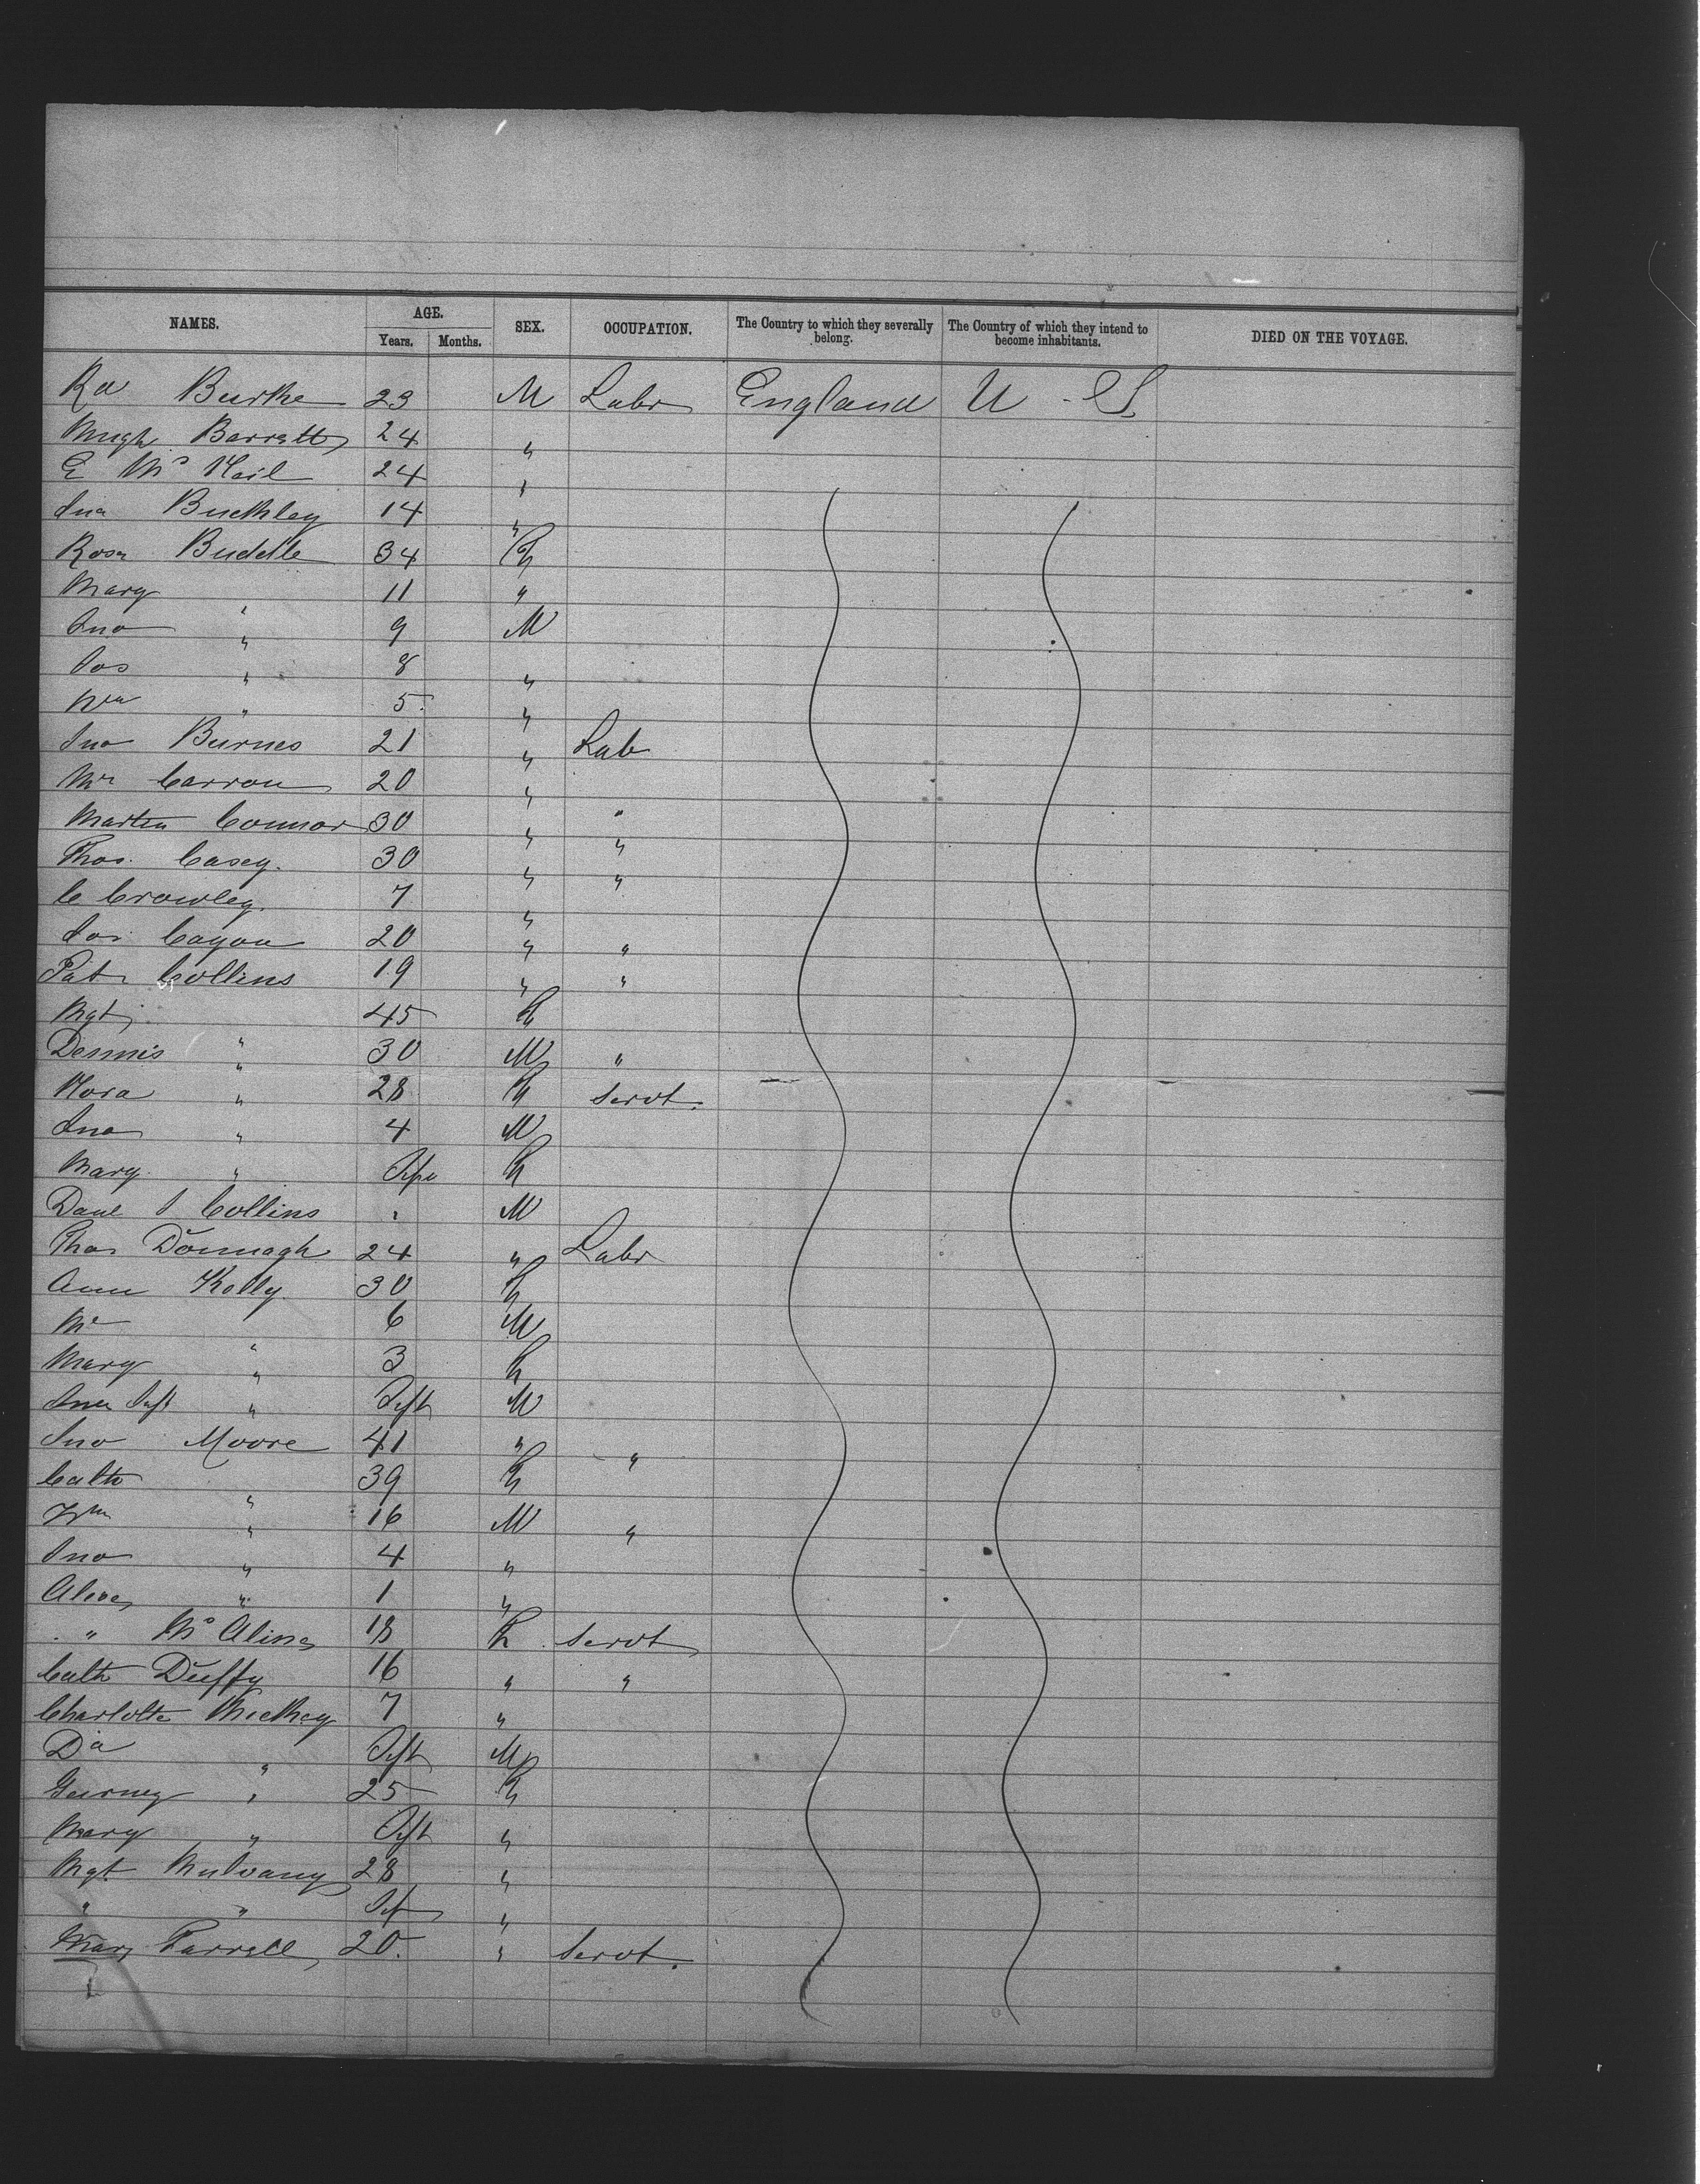 NAMES. AGE. SEX. OCCUPATION. The Country to which they severally belong. The Country of which they intend to become inhabitants. DIED ON THE VOYAGE.
Years. Months.
Rd Burke 23 M Labr England U - S
Hugh Barrett 24 "
E Mc Hail 24 "
Jno Buckley 14 "
Rosa Buddle 34 F
Mary " 11 "
Jno " 9 M
Jos " 8 "
Wm " 5 "
Jno Burnes 21 " Lab
Mr Carron 20 "
Martin Connor 30 " "
Thos. Casey. 30 " "
C Crowley. 7 "
Jos. Cayou 20 " "
Pat Collins 19 " "
Mgt " 45 F
Dennis " 30 M "
Nora " 28 F Servt.
Jno " 4 M
Mary " Inf F
Danl J Collins " M
Thos Donnagh 24 " Labr
Ann Kelly 30 F
Mr " 6 M
Mary " 3 F
Jno Inft " Inft M
Jno Moore 41 " "
Cath " 39 F
Wm " 16 M "
Jno " 4 "
Alice " 1 "
" Mc Aline 18 F Servt
Cath Duffy 16 " "
Charlotte Mickey 7 "
Da " Inft M
" 25 F
Mary " Inft "
Mgt Mulvany 28 "
" " Inf "
Mary Farrell 20. " Servt.